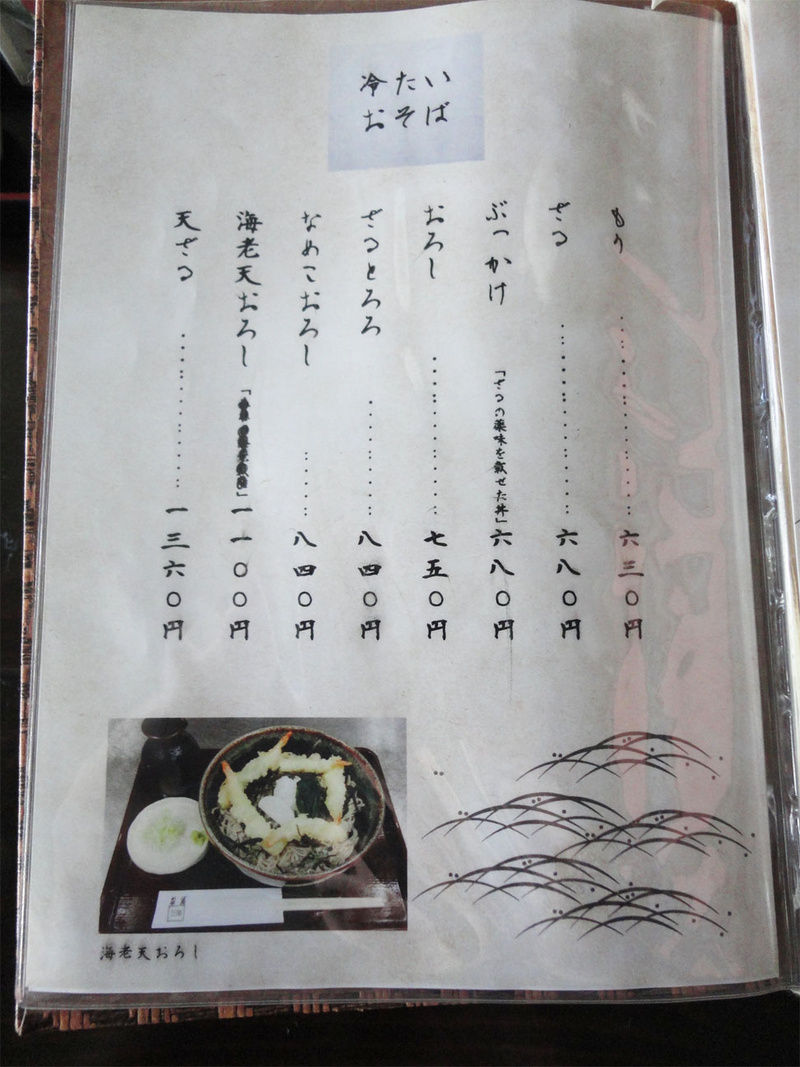 冷たい
おそば
もり…………六三〇円
ざる…………六八〇円
ぶっかけ「ざるの薬味を載せた丼」六八〇円
おろし…………七五〇円
ざるとろろ…………八四〇円
なめこおろし……八四〇円
海老天おろし「」一一〇〇円
天ざる…………一三六〇円
海老天おろし